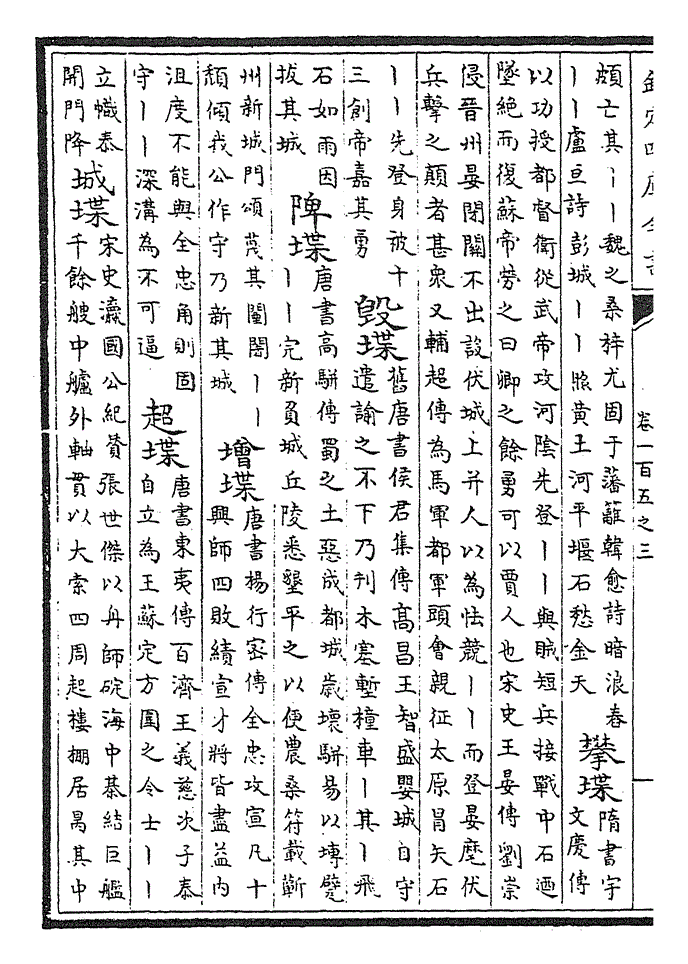 欽定四庫全書
卷一百五之三
頗亡其丨丨魏之桑梓尤固于藩蘺韓愈詩暗浪舂
丨丨盧亘詩彭城丨丨照黃土河平堰石愁金天
攀堞
隋書宇
文慶傳
以功授都督衛從武帝攻河陰先登丨丨與賊短兵接戰中石迺
墜絶而復蘇帝勞之曰卿之餘勇可以賈人也宋史王晏傳劉崇
侵晉州晏閉關不出設伏城上并人以為怯競丨丨而登晏麾伏
兵擊之顛者甚衆又輔超傳為馬軍都軍頭會親征太原冒矢石
丨丨先登身被十
三創帝嘉其勇
毁堞
舊唐書侯君集傳髙昌王智盛嬰城自守
遣諭之不下乃刊木塞塹橦車丨其丨飛
石如雨因
拔其城
陴堞
唐書高駢傳蜀之土惡成都城歲壞駢易以塼甓
丨丨完新負城丘陵悉墾平之以便農桑符載蘄
州新城門頌蔑其闉閤丨丨
頽傾我公作守乃新其城
增堞
唐書楊行宻傳全忠攻宣凡十
興師四敗績宣才將皆盡益内
沮度不能與全忠角則固
守丨丨深溝為不可逼
超堞
唐書東夷傳百濟王義慈次子泰
自立為王蘇定方圍之令士丨丨
立幟泰
開門降
城堞
宋史瀛國公紀贊張世傑以舟師碇海中棊結巨艦
千餘艘中艫外軸貫以大索四周起樓棚居昺其中